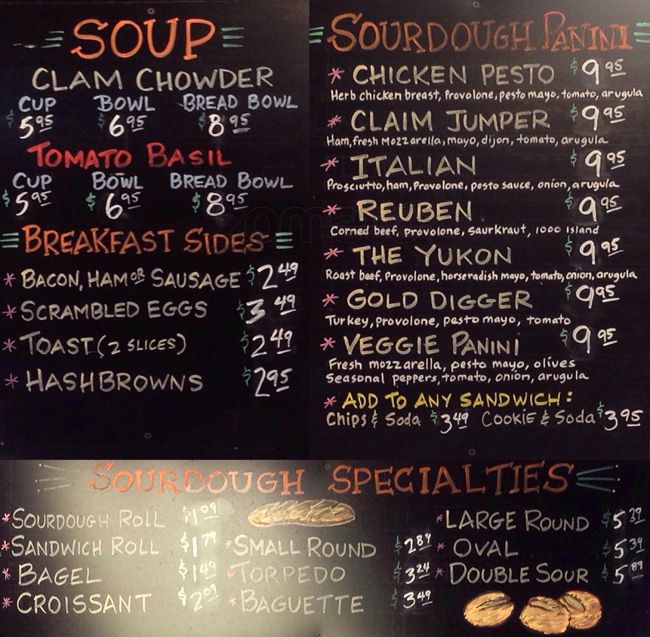 SOUP
CLAM CHOWDER
CUP BOWL BREAD BOWL
$5.95 $6.95 $8.95
TOMATO BASIL
CUP BOWL BREAD BOWL
$5.95 $6.95 $8.95
BREAKFAST SIDES
* BACON, HAM OR SAUSAGE $2.49
* SCRAMBLED EGGS $3.49
* TOAST (2 SLICES) $2.49
* HASHBROWNS $2.95
SOURDOUGH PANINI
* CHICKEN PESTO $9.95
Herb chicken breast, Provolone, pesto mayo, tomato, arugula
* CLAIM JUMPER $9.95
Ham, fresh Mozzarella, mayo, dijon, tomato, arugula
* ITALIAN $9.95
Prosciutto, ham, Provolone, pesto sauce, onion, arugula
* REUBEN $9.95
Corned beef, provolone, saurkraut, 1000 island
* THE YUKON $9.95
Roast beef, Provolone, horseradish mayo, tomato, onion, arugula
* GOLD DIGGER $9.95
Turkey, provolone, pesto mayo, tomato
* VEGGIE PANINI $9.95
Fresh mozzarella, pesto mayo, olives
Seasonal peppers, tomato, onion, arugula
* ADD TO ANY SANDWICH:
Chips & Soda $3.49 Cookie & Soda $3.95
SOURDOUGH SPECIALTIES
* SOURDOUGH ROLL $1.09
* SANDWICH ROLL $1.79
* BAGEL $1.49
* CROISSANT
* SMALL ROUND $2.89
* TORPEDO $3.24
* BAGUETTE $3.49
* LARGE ROUND $5.39
* OVAL $5.39
* DOUBLE SOUR $5.89